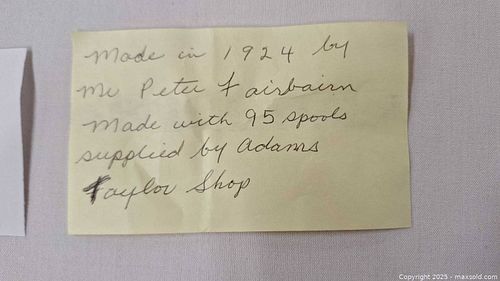 Made in 1924 by
Mr Peter Fairbairn
Made with 95 spools
supplied by Adams
Taylor Shop
Copyright 2025 - maxsold.com